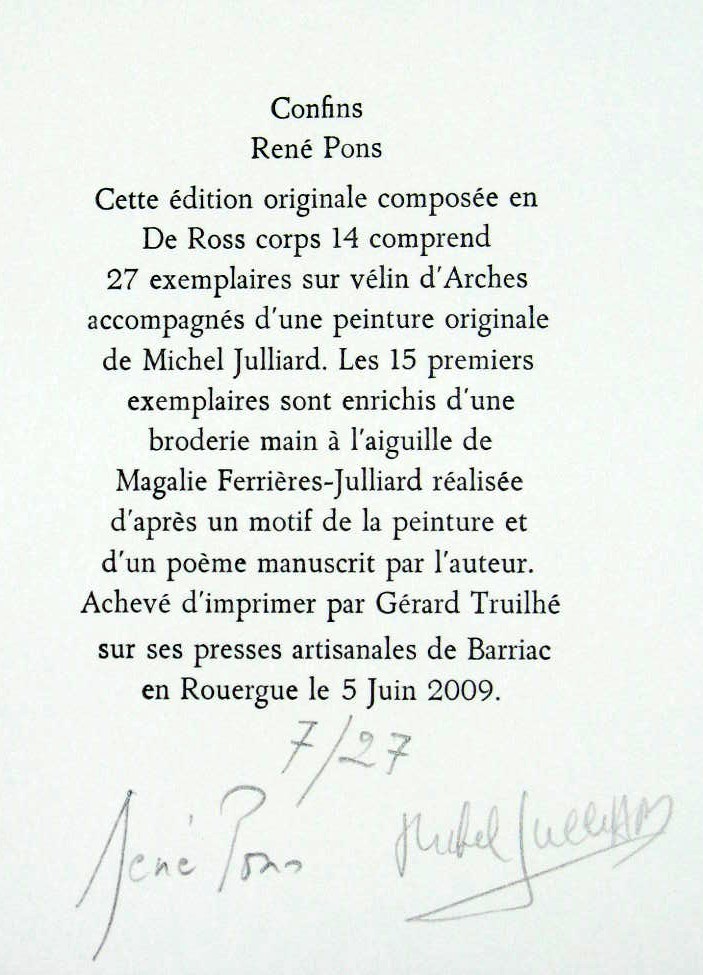 Confins
René Pons
Cette édition originale composée en
De Ross corps 14 comprend
27 exemplaires sur vélin d'Arches
accompagnés d'une peinture originale
de Michel Julliard. Les 15 premiers
exemplaires sont enrichis d'une
broderie main à l'aiguille de
Magalie Ferrières-Julliard réalisée
d'après un motif de la peinture et
d'un poème manuscrit par l'auteur.
Achevé d'imprimer par Gérard Truilhé
sur ses presses artisanales de Barriac
en Rouergue le 5 Juin 2009.
7/27
René Pons Michel Julliard